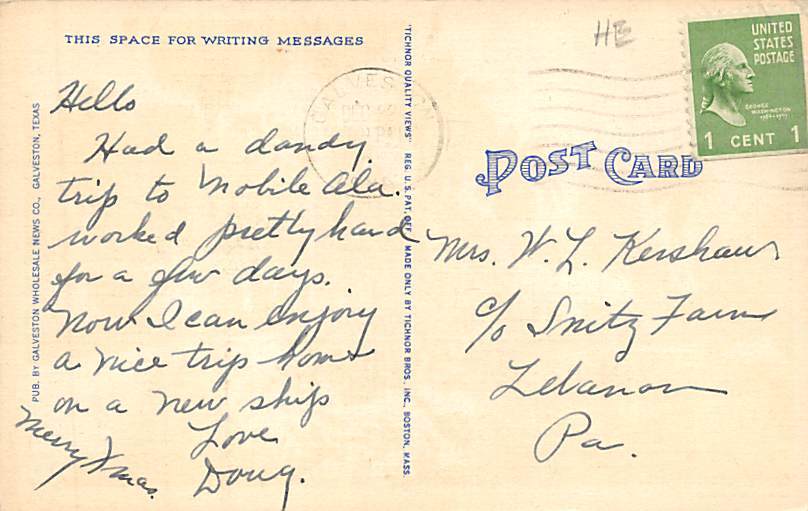 THIS SPACE FOR WRITING MESSAGES
Hello
Had a dandy
trip to Mobile Ala.
worked pretty hard
for a few days.
Now I can enjoy
a nice trip home
on a new ship
Love
Doug.
Merry Xmas.
PUB. BY GALVESTON WHOLESALE NEWS CO., GALVESTON, TEXAS
"TICHNOR QUALITY VIEWS" REG. U. S. PAT. OFF. MADE ONLY BY TICHNOR BROS. INC., BOSTON, MASS.
GALVESTON
DEC
HE
UNITED
STATES
POSTAGE
GEORGE
WASHINGTON
1 CENT 1
POST CARD
Mrs. W. L. Kershaw
c/o Snitz Farm
Lebanon
Pa.